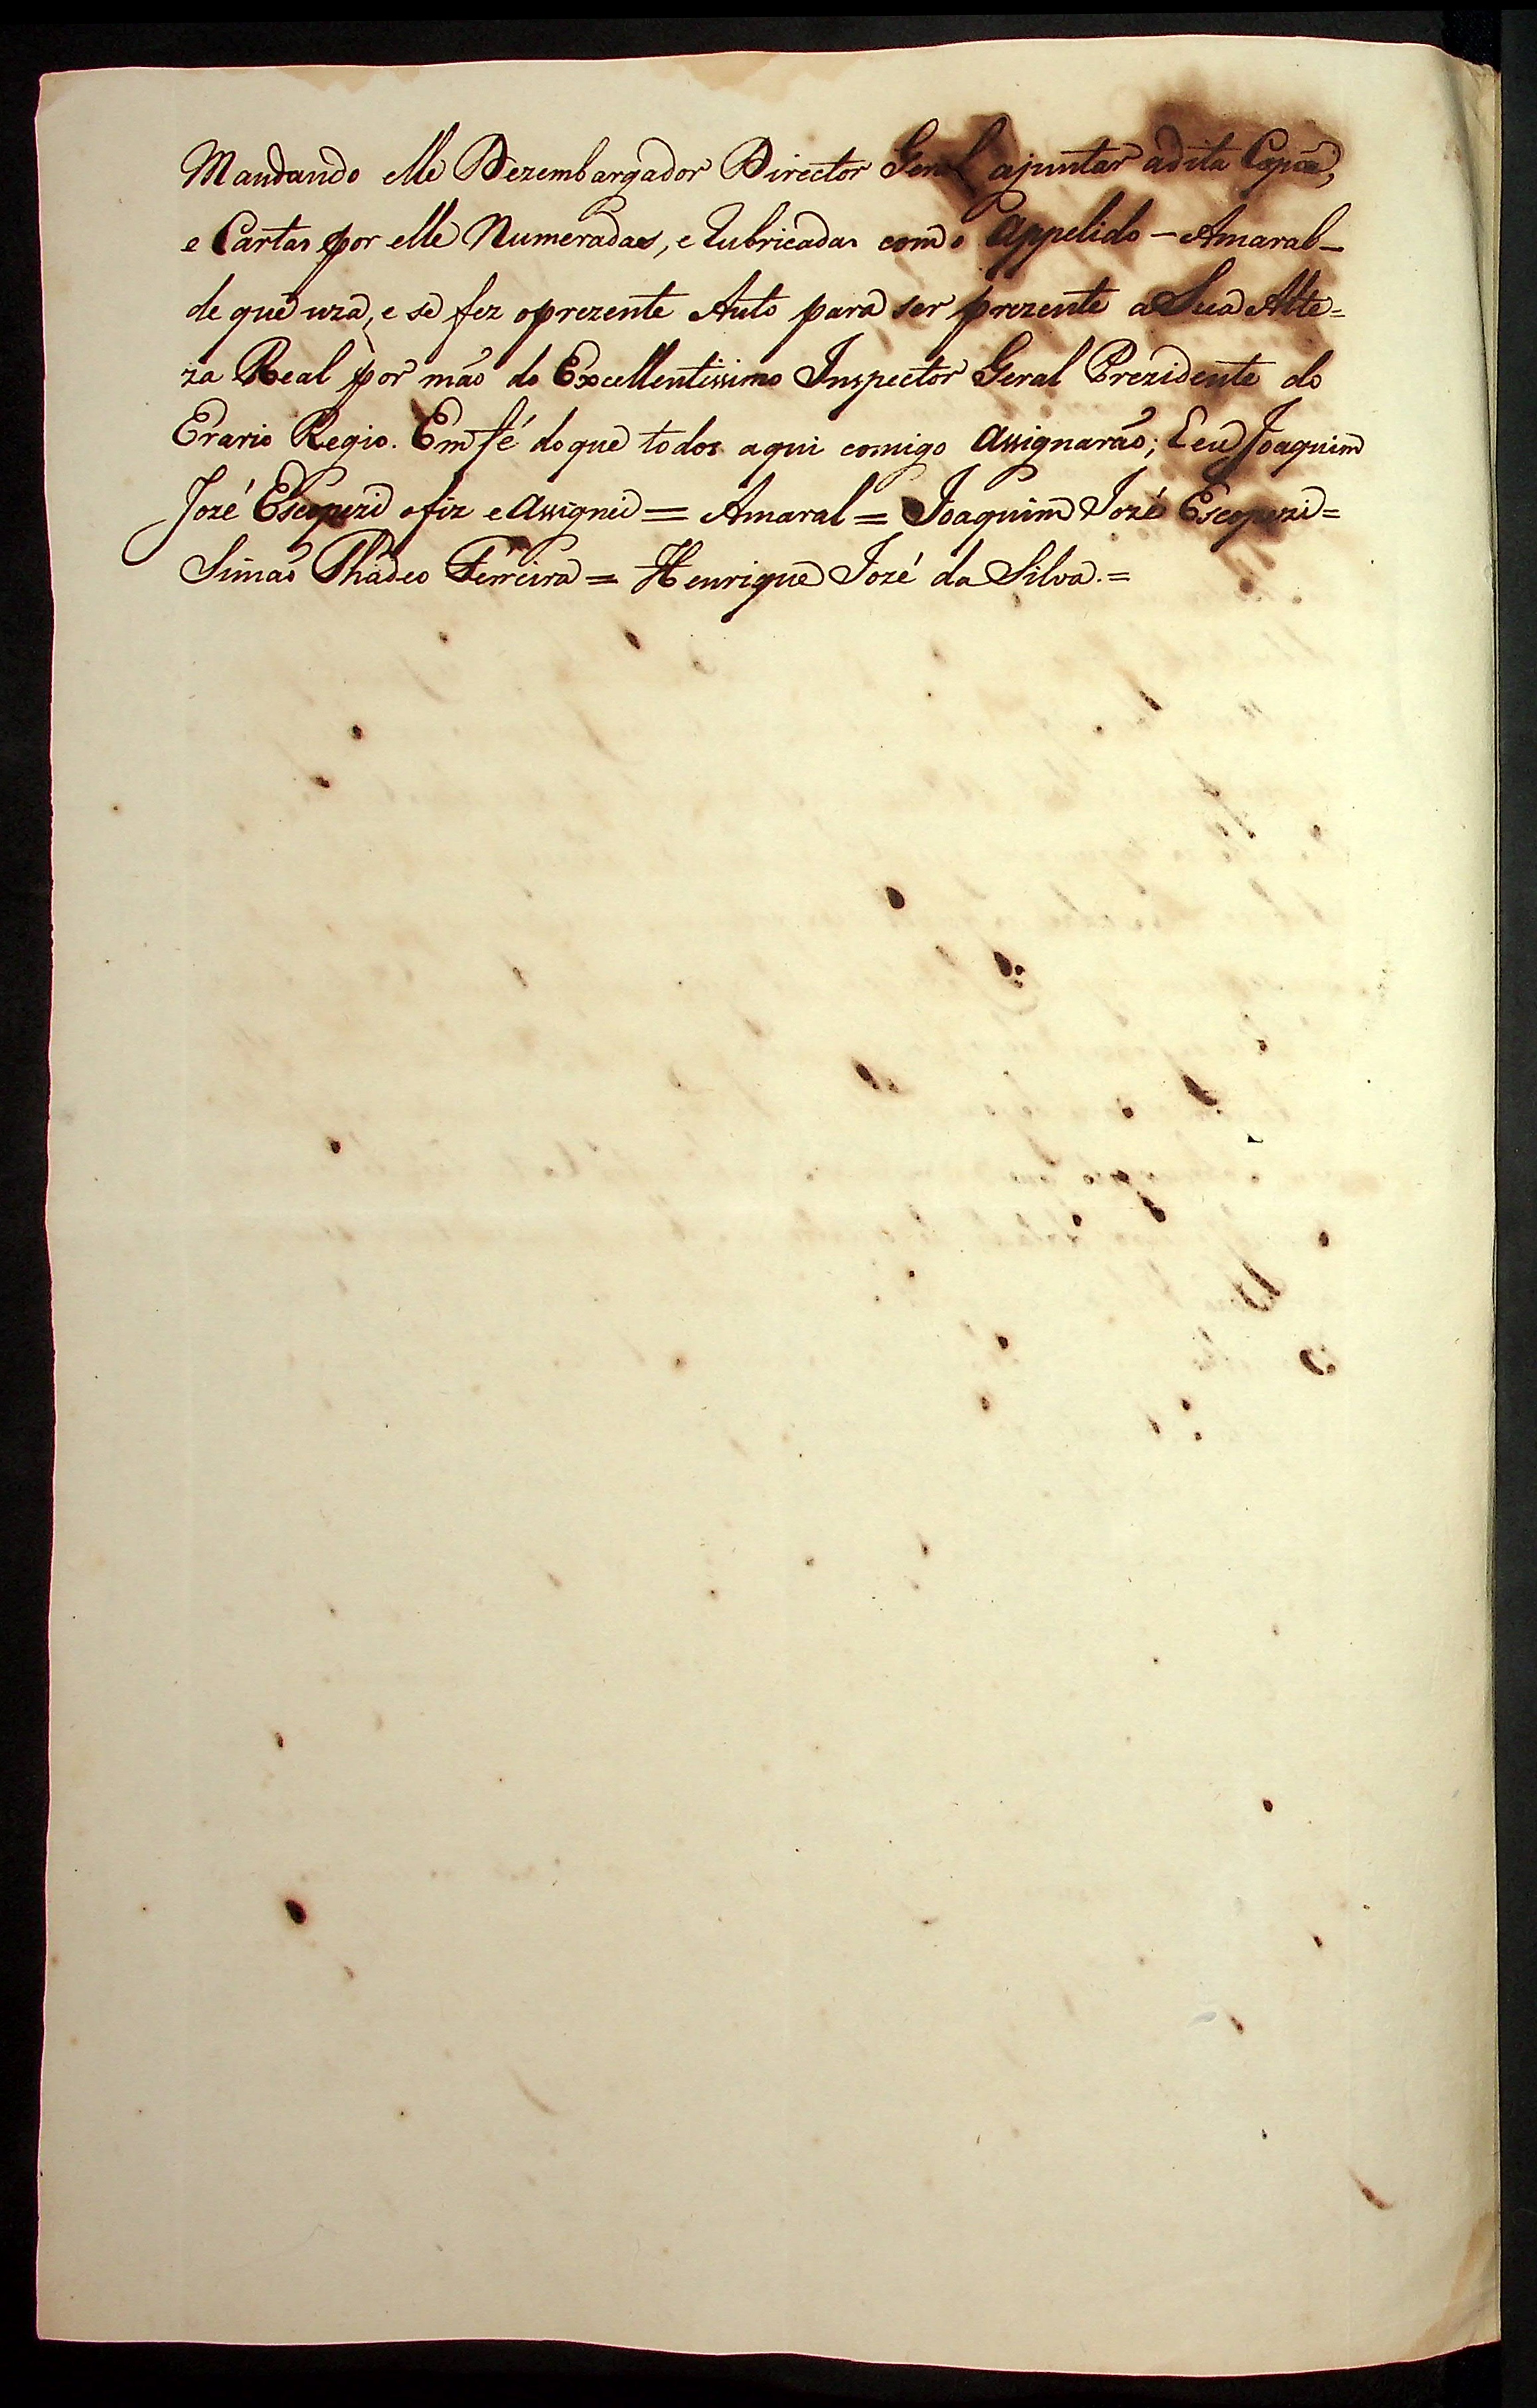 Mandando elle Dezembargador Director Geral ajuntar adita Copia,
e Cartas por elle Numeradas, e Rubricadas com o Appelido – Amaral –
de que uza, e se fez oprezente Auto para ser prezente a Sua Alte=
za Real por mão do Excellentissimo Inspector Geral Prezidente do
Erario Regio. Em fé doque todos aqui comigo assignarão; E eu Joaquim
Jozé Escopezi ofiz e assignei = Amaral = Joaquim Jozé Escopezi =
Simão Thadeo Ferreira = Henrique Jozé da Silva. =